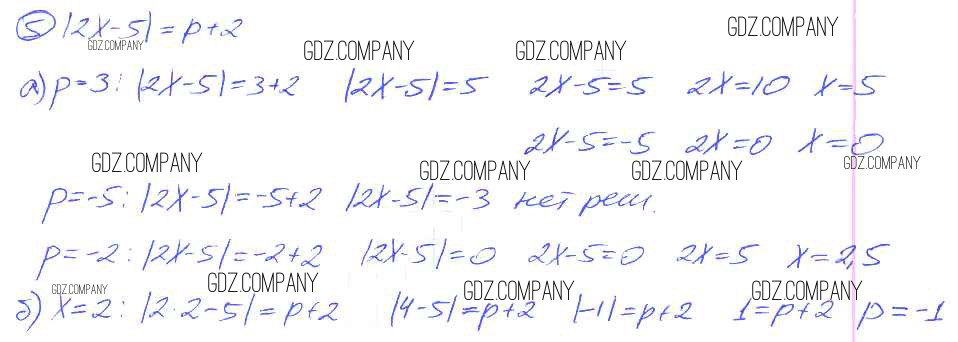 ⑤ |2x-5| = p+2
GDZ.COMPANY GDZ.COMPANY GDZ.COMPANY GDZ.COMPANY
а) p=3: |2x-5|=3+2 |2x-5|=5 2x-5=5 2x=10 x=5
2x-5=-5 2x=0 x=0
GDZ.COMPANY GDZ.COMPANY GDZ.COMPANY GDZ.COMPANY
p=-5: |2x-5|=-5+2 |2x-5|=-3 нет реш.
p=-2: |2x-5|=-2+2 |2x-5|=0 2x-5=0 2x=5 x=2,5
GDZ.COMPANY GDZ.COMPANY GDZ.COMPANY GDZ.COMPANY
б) x=2: |2·2-5|=p+2 |4-5|=p+2 |-1|=p+2 1=p+2 p=-1